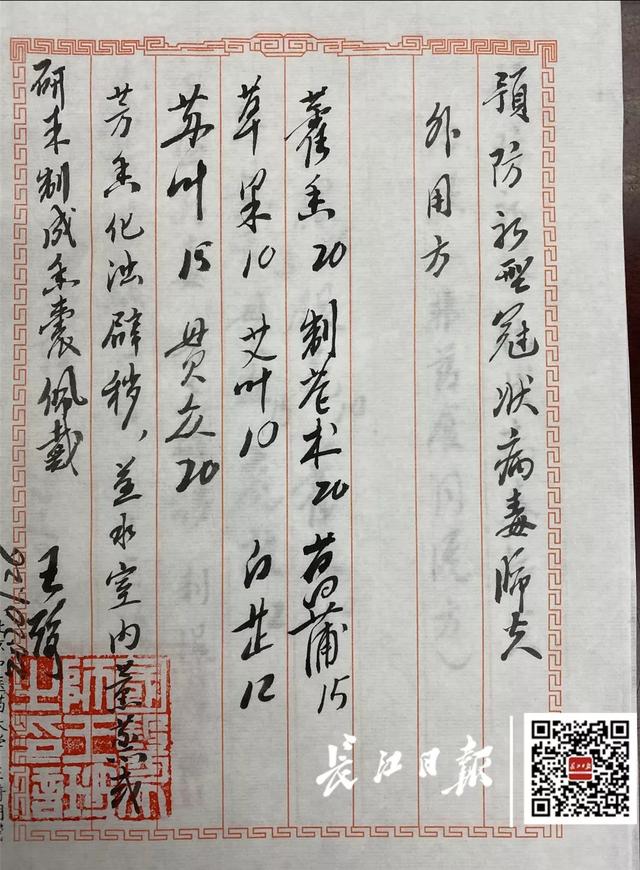 预防新型冠状病毒肺炎
外用方
藿香20 制苍术20 菖蒲15
草果10 艾叶10 白芷12
苏叶15 贯众20
芳香化浊辟秽，煎水室内熏蒸或
研末制成香囊佩戴
王琦
2020.1.26
长江日报